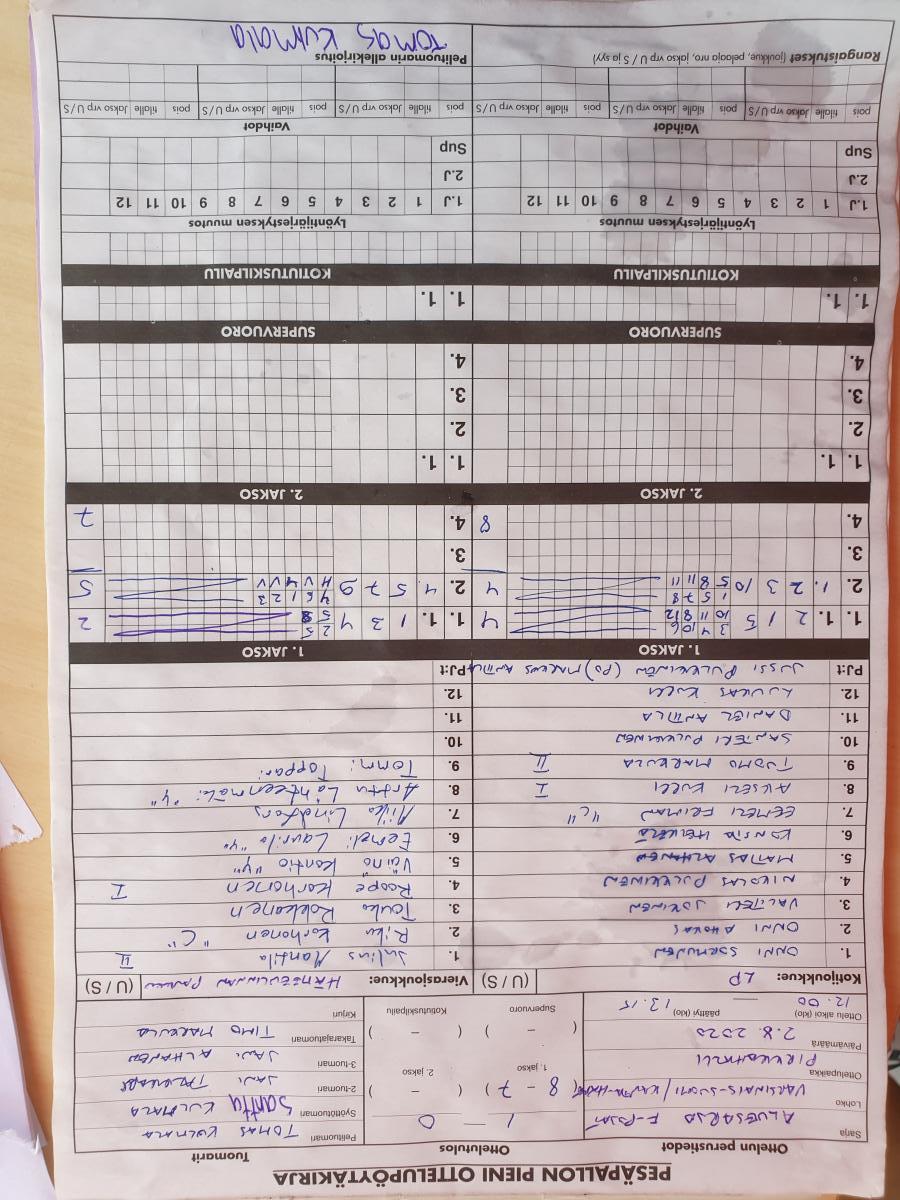 PESÄPALLON PIENI OTTELUPÖYTÄKIRJA
Ottelun perustiedot
Ottelutulos
Tuomarit
Sarja
ALUESARJA F-POJAT
1 — 0
Pelituomari
TOMAS KULMALA
Lohko
VARSINAIS-SUOMI / KANTA-HÄME
1. jakso
( 8 – 7 )
2. jakso
( – )
Syöttötuomari
Santtu KULMALA
Ottelupaikka
2-tuomari
JANI
Päivämäärä
2.8.2020
Supervuoro
( – )
Kotiutuskilpailu
( – )
3-tuomari
JANI ALHANEN
Ottelu alkoi (klo)
12.00
päättyi (klo)
13.15
Takarajatuomari
TIMO MARKULA
Kirjuri
Kotijoukkue: LP (U / S)
Vierasjoukkue: HÄMEENLINNAN (U / S)
1. ONNI SORMUNEN
2. ONNI AHOKAS
3. VALTTERI JOKINEN
4. NIKOLAS PULKKINEN
5. MATIAS ALHANEN
6. KONSTA HEIKKILÄ
7. EEMELI FRIMAN "C"
8. AKSELI KULLI I
9. TUOMO MARKULA II
10. SANTERI PULKKINEN
11. DANIEL ANTTILA
12. LUUKAS KULLI
PJ:t JUSSI PULKKINEN (PJ) MARKUS ANTTILA
1. Julius Mantila II
2. Riku Korhonen "C"
3. Touko Rokkanen
4. Roope Karhonen I
5. Väinö Kontio "Y"
6. Eemeli Laurila "Y"
7. Miika Lindfors
8. Arttu Lähteenmäki "Y"
9. Tommi Toppari
10.
11.
12.
PJ:t
1. JAKSO
1. JAKSO
1. 1. 2 1 5 3 4 10 6 4
10 11 8 12
1. 1. 1 3 4 2 5 2
5 8
2. 1. 2 3 10 1 5 7 8 4
5 8 11 11
2. 4. 5 7 9 4 6 1 2 3 5
H V 4 V V
3.
3.
4. 8
4. 7
2. JAKSO
2. JAKSO
1. 1.
1. 1.
2.
2.
3.
3.
4.
4.
SUPERVUORO
SUPERVUORO
1. 1.
1. 1.
KOTIUTUSKILPAILU
KOTIUTUSKILPAILU
Lyöntijärjestyksen muutos
Lyöntijärjestyksen muutos
1.J 1 2 3 4 5 6 7 8 9 10 11 12
1.J 1 2 3 4 5 6 7 8 9 10 11 12
2.J
2.J
Sup
Sup
Vaihdot
Vaihdot
pois tilalle Jakso vrp U / S pois tilalle Jakso vrp U / S pois tilalle Jakso vrp U / S
pois tilalle Jakso vrp U / S pois tilalle Jakso vrp U / S pois tilalle Jakso vrp U / S
Rangaistukset (joukkue, pelaaja nro, jakso vrp U / S ja syy)
Pelituomarin allekirjoitus
TOMAS KULMALA